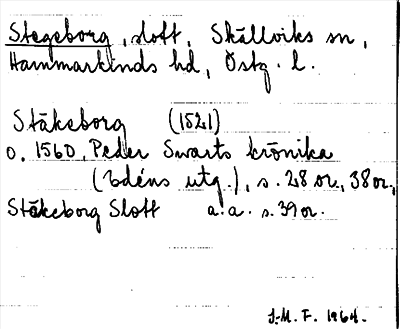 Stegeborg, slott, Skällviks sn,
Hammarkinds hd, Östg. l.
Stäkeborg (1521)
o. 1560, Peder Swarts krönika
(Edéns utg.), s. 28 or., 38 or.,
Stäkeborg Slott a.a. s. 39 or.
J.M.F. 1964.